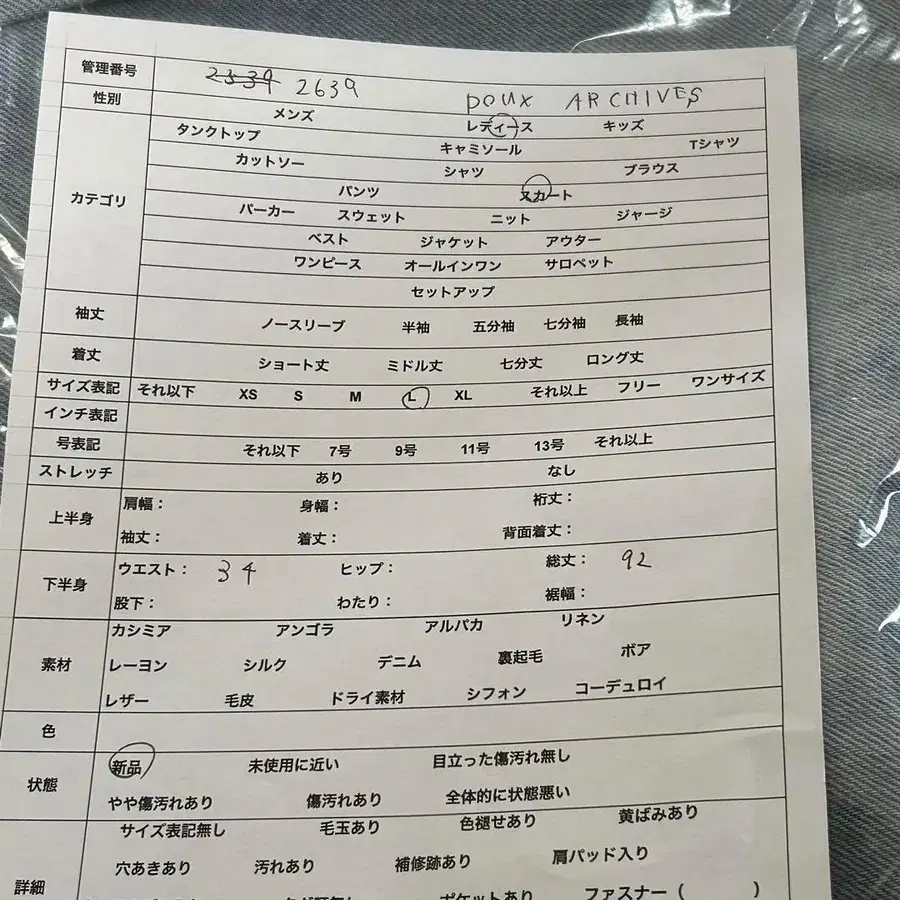 管理番号 2539 2639
DOUX ARCHIVES
性別 メンズ レディース キッズ
カテゴリ
タンクトップ キャミソール Tシャツ
カットソー シャツ ブラウス
パンツ スカート
パーカー スウェット ニット ジャージ
ベスト ジャケット アウター
ワンピース オールインワン サロペット
セットアップ
袖丈 ノースリーブ 半袖 五分袖 七分袖 長袖
着丈 ショート丈 ミドル丈 七分丈 ロング丈
サイズ表記 それ以下 XS S M L XL それ以上 フリー ワンサイズ
インチ表記
号表記 それ以下 7号 9号 11号 13号 それ以上
ストレッチ あり なし
上半身
肩幅: 身幅: 裄丈:
袖丈: 着丈: 背面着丈:
下半身
ウエスト: 34 ヒップ: 総丈: 92
股下: わたり: 裾幅:
素材
カシミア アンゴラ アルパカ リネン
レーヨン シルク デニム 裏起毛 ボア
レザー 毛皮 ドライ素材 シフォン コーデュロイ
色
状態
新品 未使用に近い 目立った傷汚れ無し
やや傷汚れあり 傷汚れあり 全体的に状態悪い
詳細
サイズ表記無し 毛玉あり 色褪せあり 黄ばみあり
穴あきあり 汚れあり 補修跡あり 肩パッド入り
ポケットあり ファスナー( )